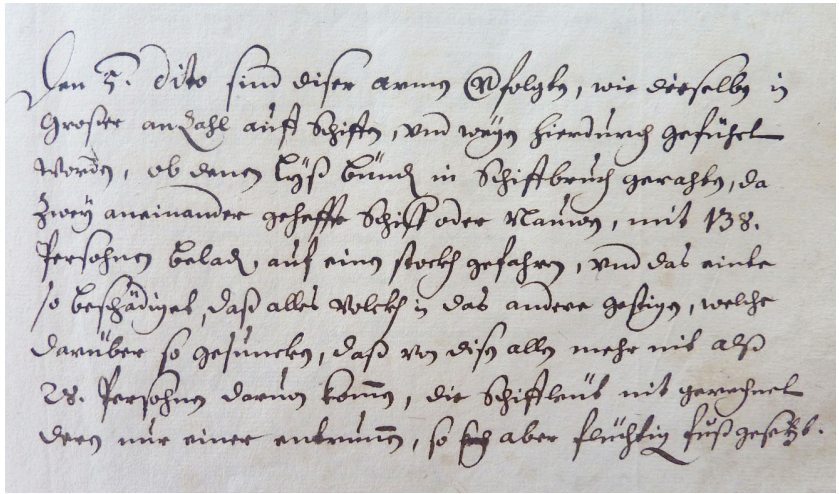 Den 5. dito sind diser armen Verfolgten, wie dieselben in
Großer anzahl auff Schiffen, und wegen hierdurch geführet
worden, ob denen Lyß bünden in Schiffbruch gerahten, da
zwey aneinander geheffte Schiff oder Nauwen, mit 138.
Persohnen beladen, auf einen stockh gefahren, und das einte
so beschädiget, daß alles Volckh in das andere gestigen, welche
darüber so gesuncken, daß von disen allen mehr nit alß
28. Persohnen darvon kommen, die Schiffleüt nit gerechnet
deren nur einer entrunnen, so aber flüchtig fuß gesetzt.